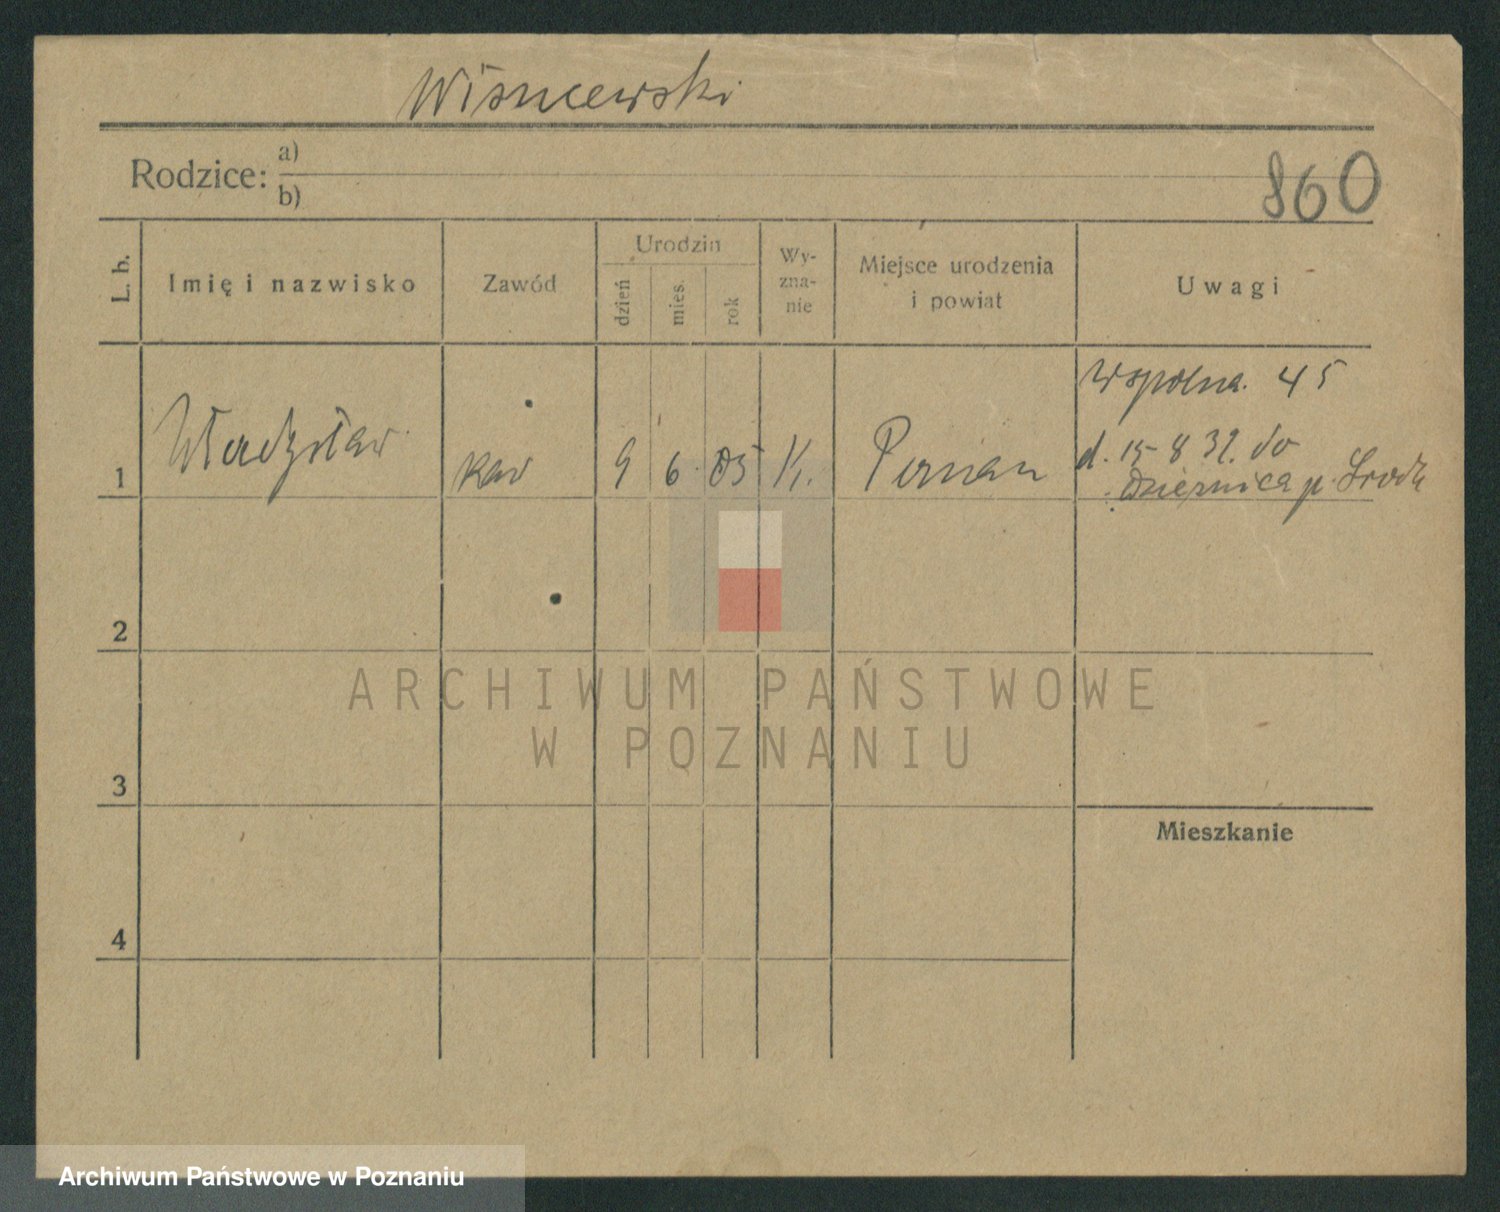 Wiśniewski
Rodzice: a)
b)
860
L. b.
Imię i nazwisko
Zawód
Urodzin
dzień
mies.
rok
Wy-
zna-
nie
Miejsce urodzenia
i powiat
Uwagi
Wspólna 45
1 Władysław kaw 9 6 05 K. Poznań
d. 15 8 32. do
p. Środa
2
3
4
Mieszkanie
ARCHIWUM PAŃSTWOWE
W POZNANIU
Archiwum Państwowe w Poznaniu